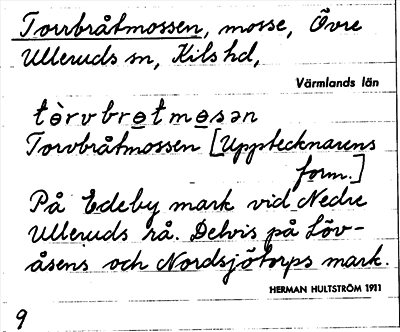 Torrbråtmossen, mosse, Övre
Ulleruds sn, Kils hd,
Värmlands län
tɵ̀rvbrɵtmɵsən
Torvbråtmossen [Upptecknarens
form.]
På Edeby mark vid Nedre
Ulleruds rå. Delvis på Löv-
åsens och Nordsjötorps mark.
HERMAN HULTSTRÖM 1911
9